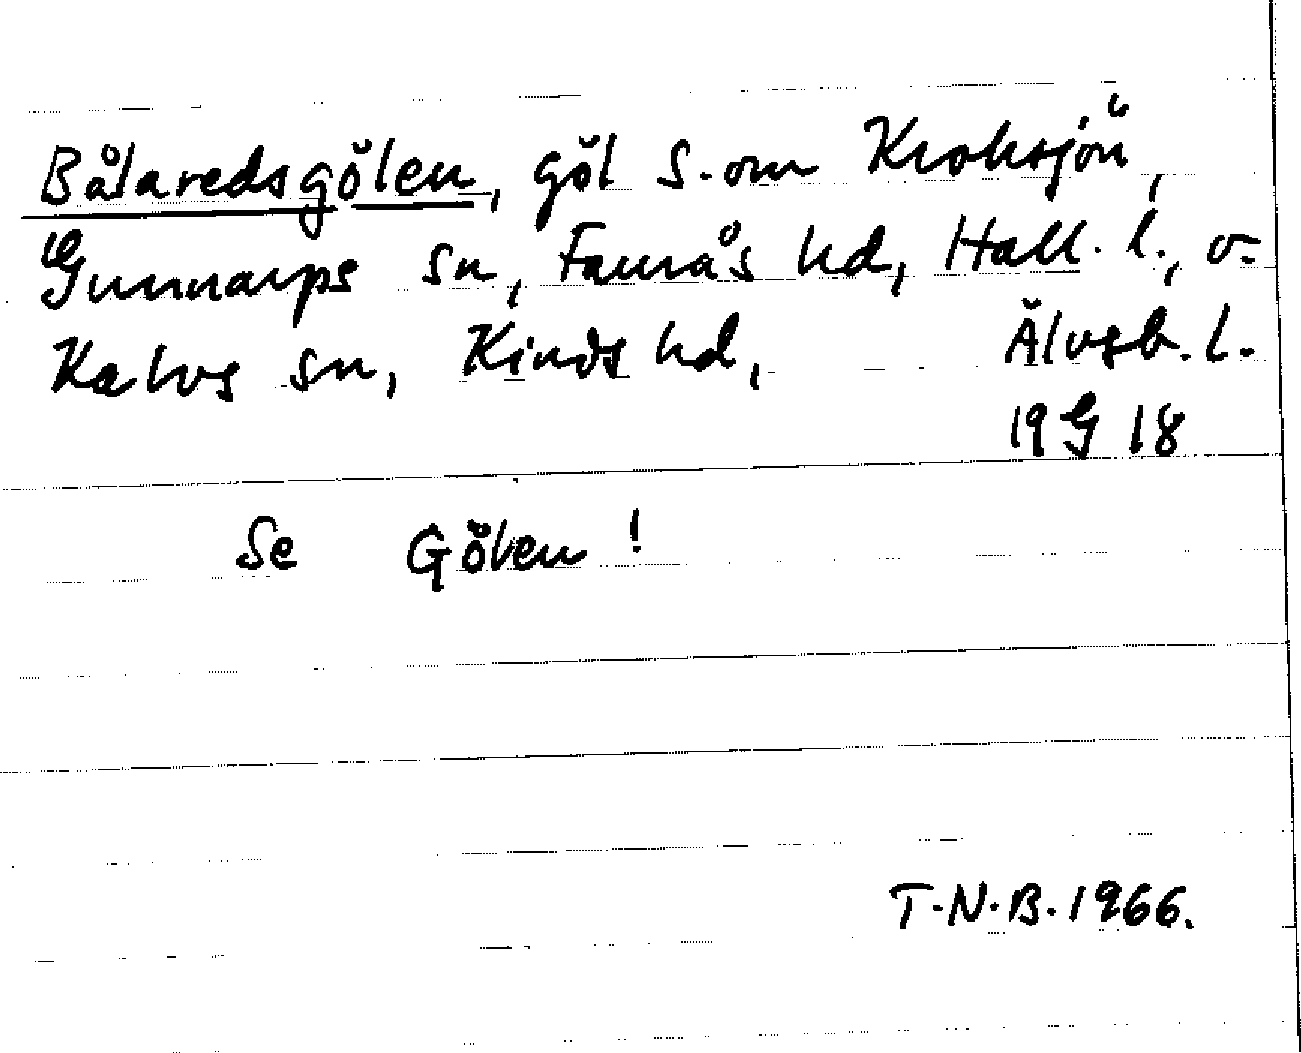 Bålaredsgölen, göl S. om Kroksjön,
Gunnarps sn, Faurås hd, Hall. l., o.
Kalvs sn, Kinds hd, Älvsb. l.
19 G 18
Se Gölen!
T.N.B. 1966.